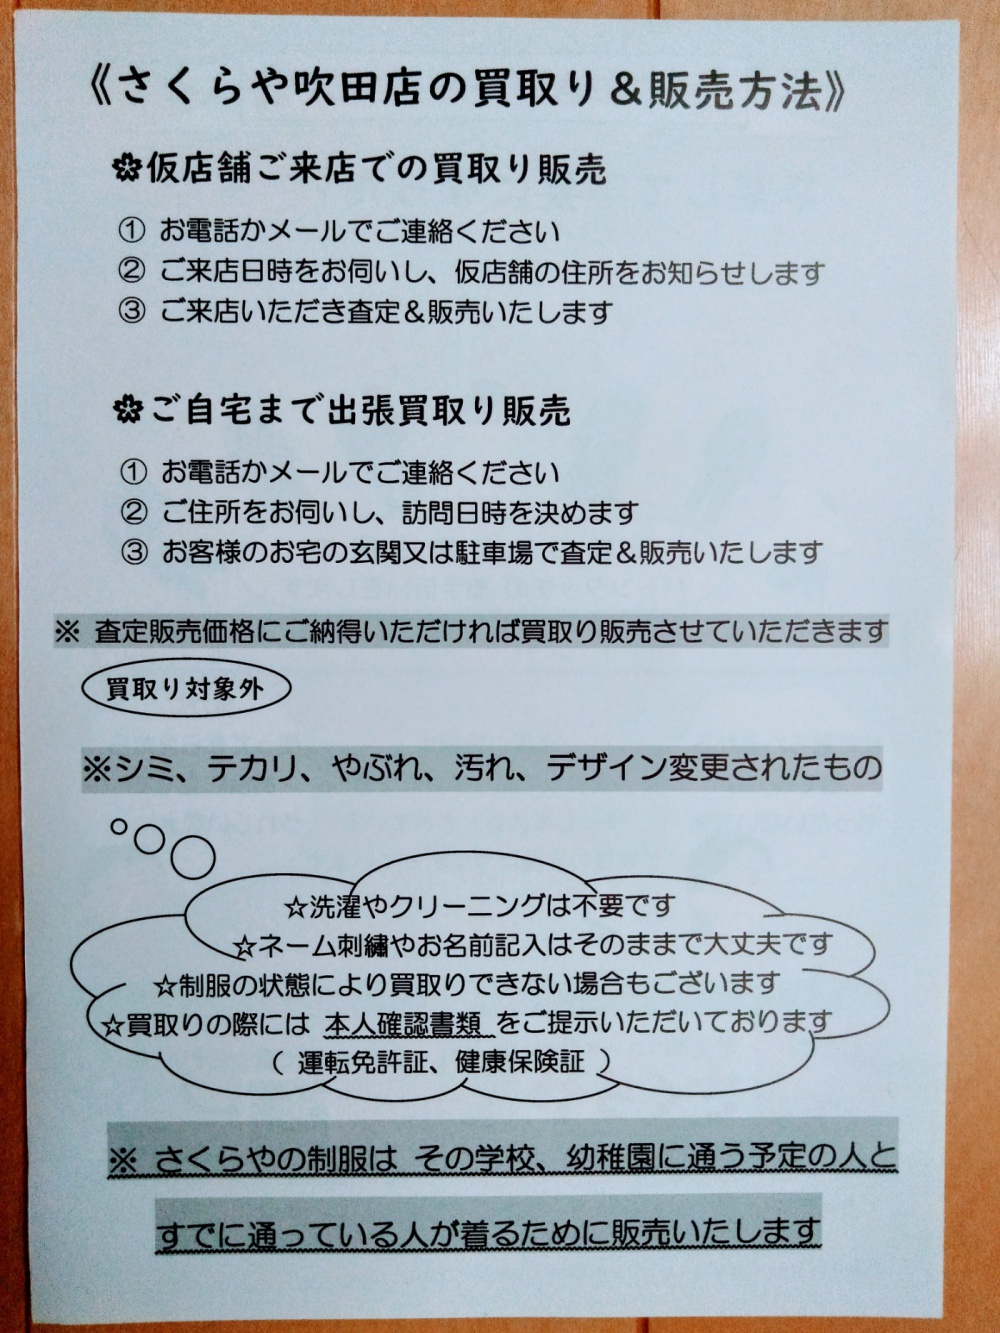 《さくらや吹田店の買取り＆販売方法》
仮店舗ご来店での買取り販売
① お電話かメールでご連絡ください
② ご来店日時をお伺いし、仮店舗の住所をお知らせします
③ ご来店いただき査定＆販売いたします
ご自宅まで出張買取り販売
① お電話かメールでご連絡ください
② ご住所をお伺いし、訪問日時を決めます
③ お客様のお宅の玄関又は駐車場で査定＆販売いたします
※ 査定販売価格にご納得いただければ買取り販売させていただきます
買取り対象外
※シミ、テカリ、やぶれ、汚れ、デザイン変更されたもの
☆洗濯やクリーニングは不要です
☆ネーム刺繍やお名前記入はそのままで大丈夫です
☆制服の状態により買取りできない場合もございます
☆買取りの際には 本人確認書類 をご提示いただいております
（ 運転免許証、健康保険証 ）
※ さくらやの制服は その学校、幼稚園に通う予定の人と
すでに通っている人が着るために販売いたします